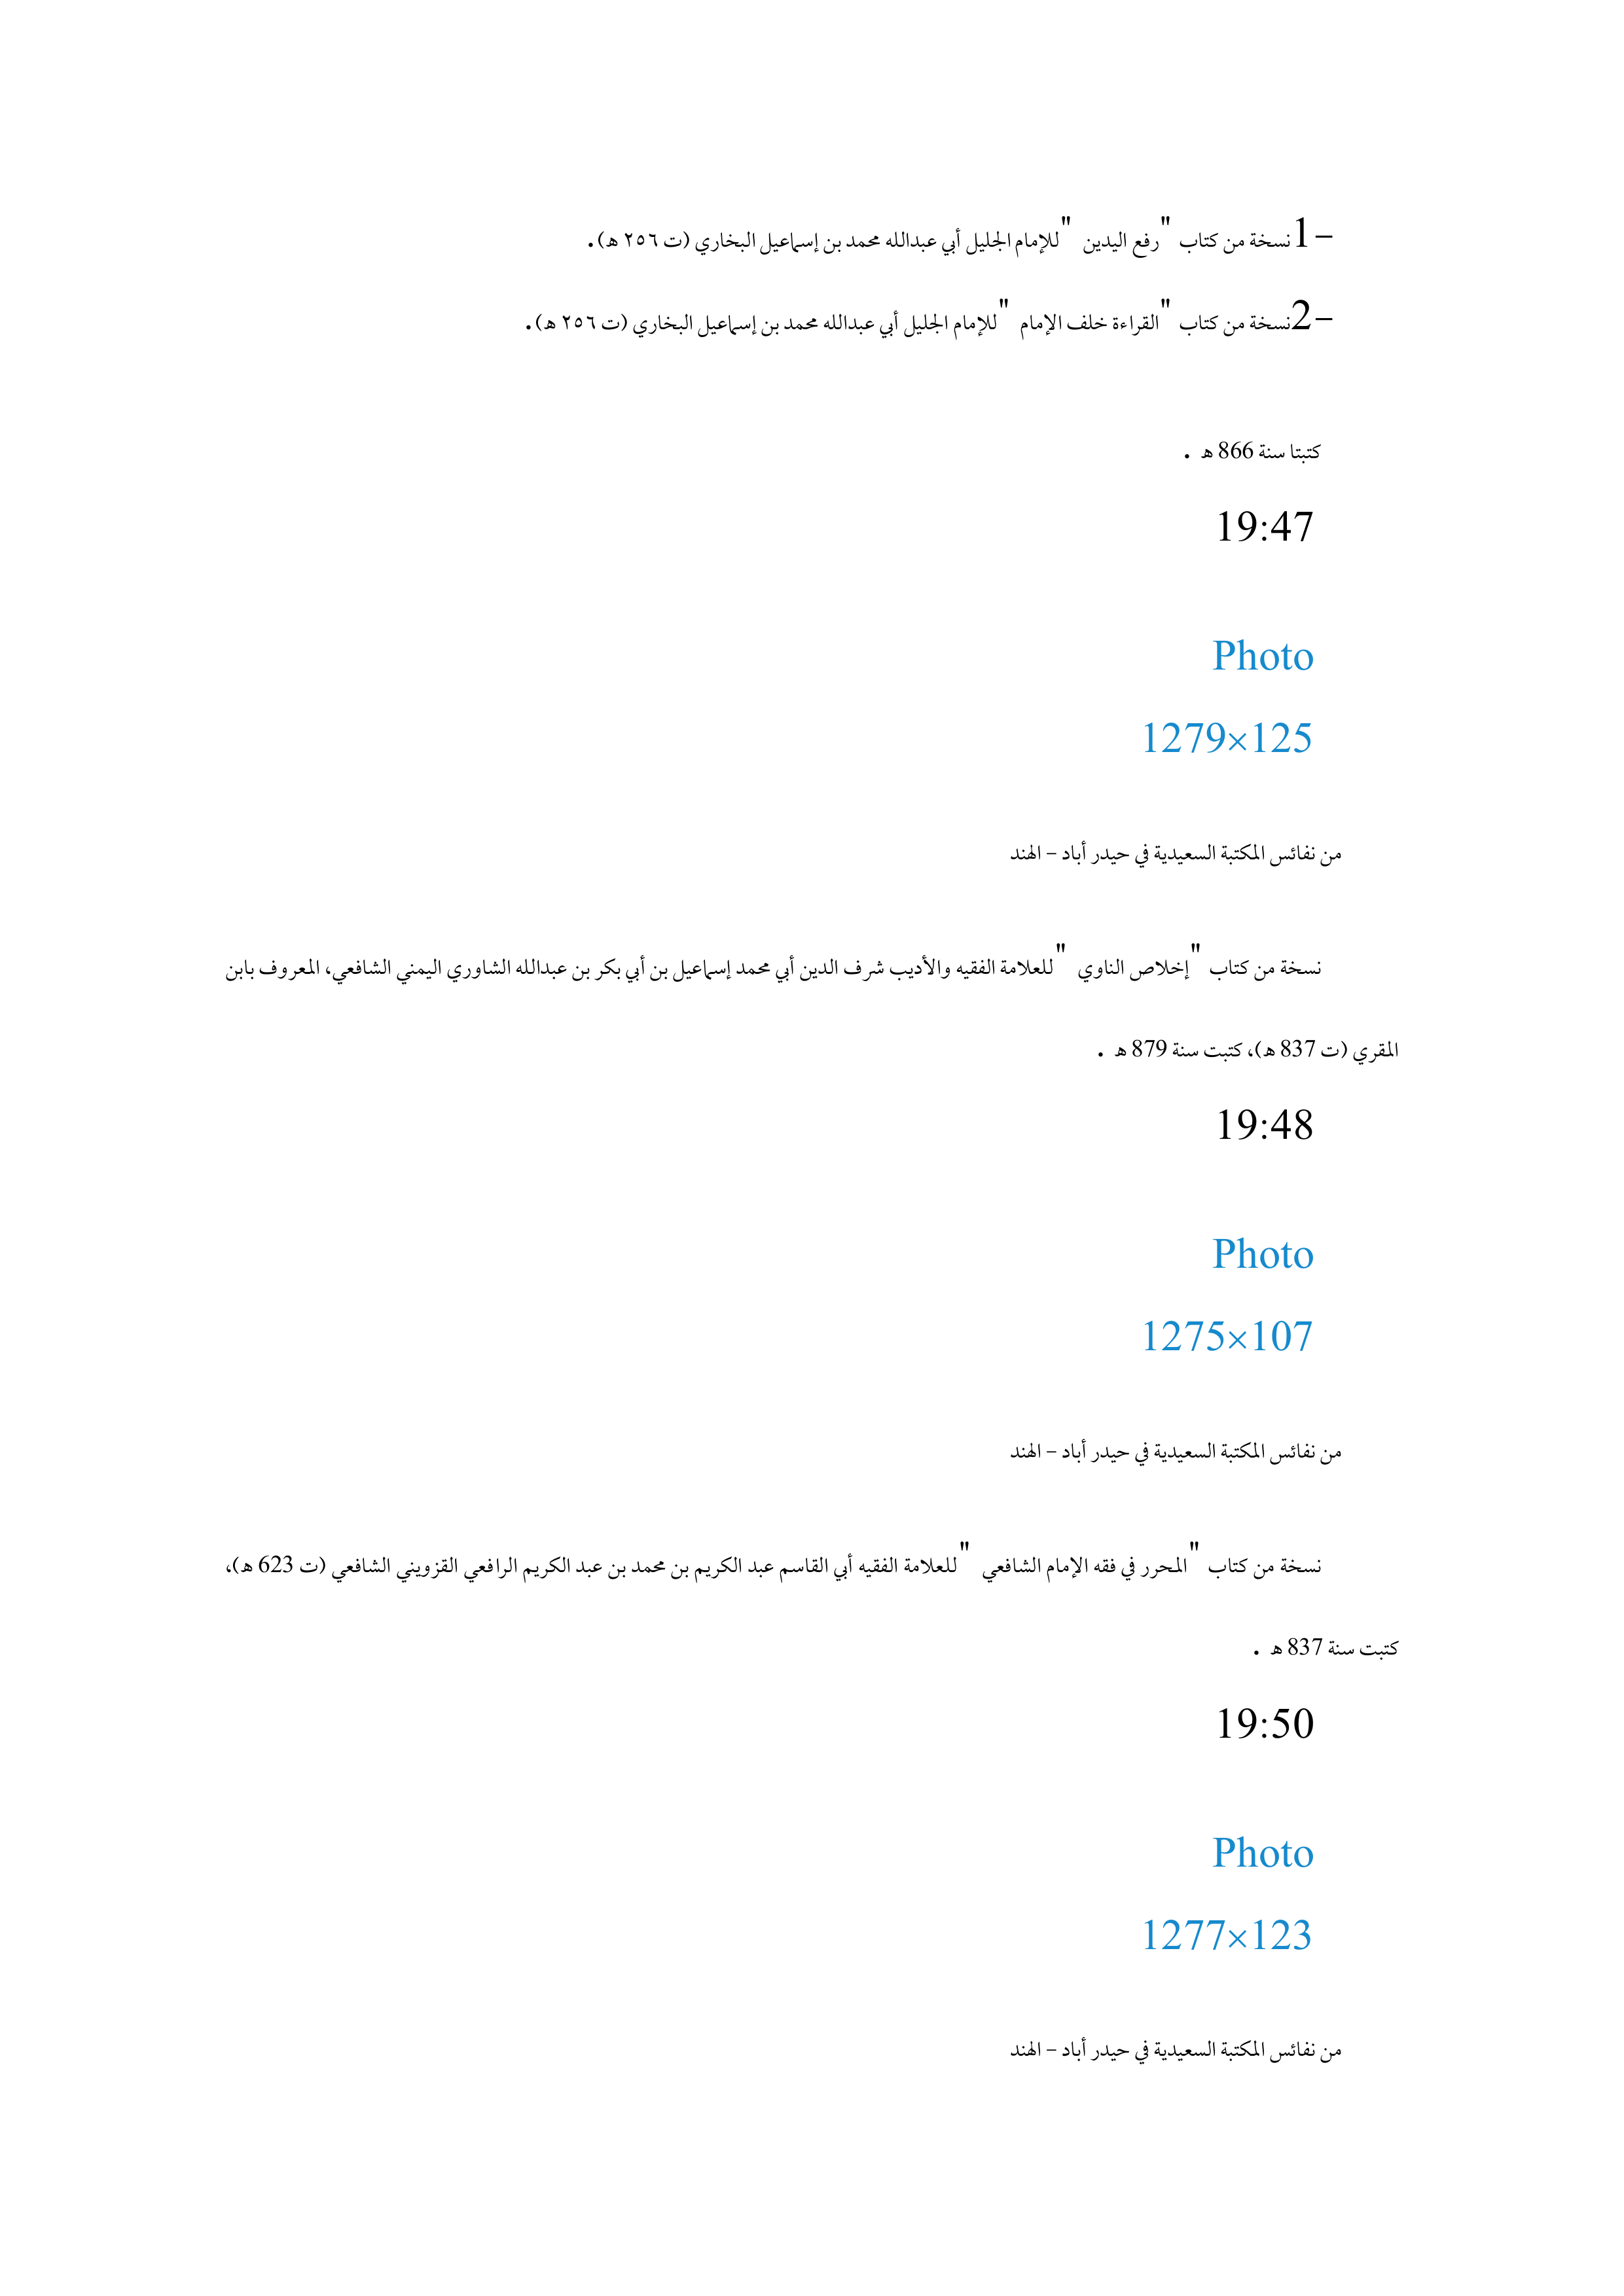 -1نسخة من كتاب "رفع اليدين" للإمام الجليل أبي عبدالله محمد بن إسماعيل البخاري (ت ٢٥٦ ه).
-2نسخة من كتاب "القراءة خلف الإمام" للإمام الجليل أبي عبدالله محمد بن إسماعيل البخاري (ت ٢٥٦ ه).
كتبتا سنة 866 ه .
19:47
Photo
1279×125
من نفائس المكتبة السعيدية في حيدر أباد - الهند
نسخة من كتاب "إخلاص الناوي" للعلامة الفقيه والأديب شرف الدين أبي محمد إسماعيل بن أبي بكر بن عبدالله الشاوري اليمني الشافعي، المعروف بابن
المقري (ت 837 ه)، كتبت سنة 879 ه .
19:48
Photo
1275×107
من نفائس المكتبة السعيدية في حيدر أباد - الهند
نسخة من كتاب "المحرر في فقه الإمام الشافعي" للعلامة الفقيه أبي القاسم عبد الكريم بن محمد بن عبد الكريم الرافعي القزويني الشافعي (ت 623 ه)،
كتبت سنة 837 ه .
19:50
Photo
1277×123
من نفائس المكتبة السعيدية في حيدر أباد - الهند